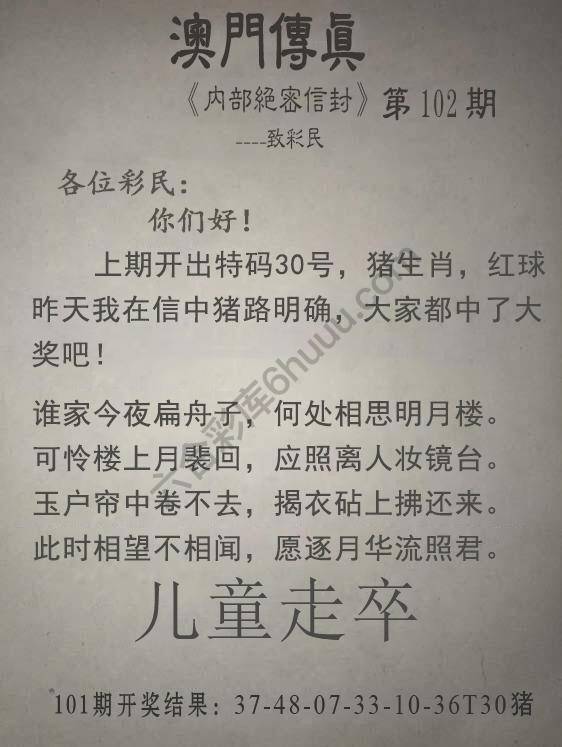 澳門傳真
《内部絕密信封》第102期
----致彩民
各位彩民：
你们好！
上期开出特码30号，猪生肖，红球
昨天我在信中猪路明确，大家都中了大
奖吧！
谁家今夜扁舟子，何处相思明月楼。
可怜楼上月裴回，应照离人妆镜台。
玉户帘中卷不去，揭衣砧上拂还来。
此时相望不相闻，愿逐月华流照君。
儿童走卒
101期开奖结果：37-48-07-33-10-36T30猪
六合彩库6huuu.com